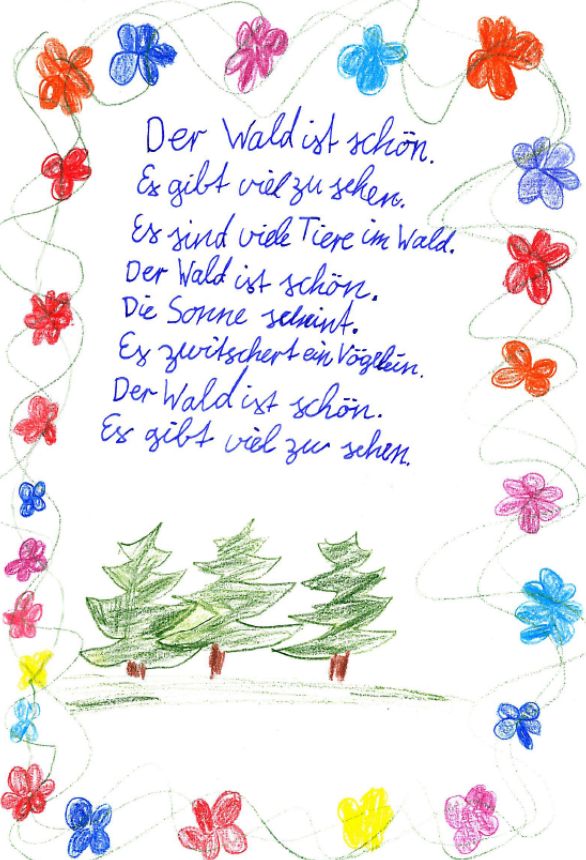 Der Wald ist schön.
Es gibt viel zu sehen.
Es sind viele Tiere im Wald.
Der Wald ist schön.
Die Sonne scheint.
Es zwitschert ein Vögelein.
Der Wald ist schön.
Es gibt viel zu sehen.